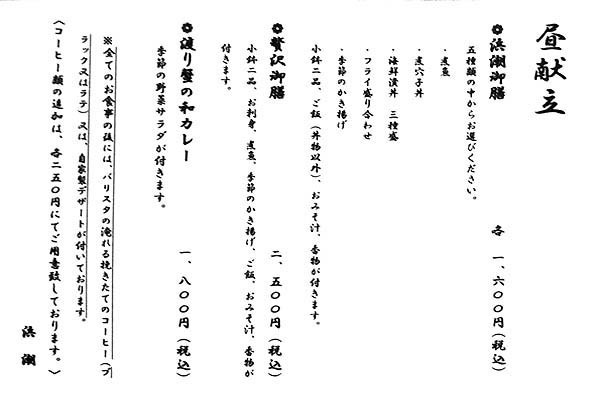 昼献立
❁浜潮御膳　各　一、六〇〇円（税込）
五種類の中からお選びください。
・煮魚
・煮穴子丼
・海鮮漬丼　三種盛
・フライ盛り合わせ
・季節のかき揚げ
小鉢二品、ご飯（丼物以外）、おみそ汁、香物が付きます。
❁贅沢御膳　二、五〇〇円（税込）
小鉢二品、お刺身、煮魚、季節のかき揚げ、ご飯、おみそ汁、香物が
付きます。
❁渡り蟹の和カレー　一、八〇〇円（税込）
季節の野菜サラダが付きます。
※全てのお食事の後には、バリスタの淹れる挽きたてのコーヒー（ブ
ラック又はラテ）又は、自家製デザートが付いております。
〈コーヒー類の追加は、各二五〇円にてご用意致しております。〉
浜潮